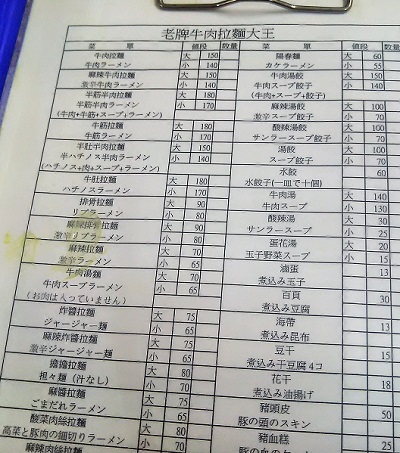 老牌牛肉拉麵大王
菜 單 值段 數量
牛肉拉麵 大 150
牛肉ラーメン 小 140
麻辣牛肉拉麵 大 150
激辛牛肉ラーメン 小 140
半筋半肉拉麵 大 180
半筋半肉ラーメン 小 170
(牛肉+牛筋+スープ+ラーメン)
牛筋拉麵 大 180
牛筋ラーメン 小 170
半肚半肉拉麵 大 150
半ハチノス半肉ラーメン 小 140
(ハチノス+肉+スープ+ラーメン)
牛肚拉麵 大 180
ハチノスラーメン 小 170
排骨拉麵 大 90
リブラーメン 小 80
麻辣排骨拉麵 大 90
激辛リブラーメン 小 80
麻辣拉麵 大 70
激辛ラーメン 小 65
牛肉湯麵 大 70
牛肉スープラーメン 小 65
(お肉は入っていません)
炸醬拉麵 大 75
ジャージャー麵 小 65
麻辣炸醬拉麵 大 75
激辛ジャージャー麵 小 65
擔擔拉麵 大 80
担々麵(汁なし) 小 70
麻醬拉麵 大 75
ごまだれラーメン 小 65
酸菜肉絲拉麵 大 80
高菜と豚肉の細切りラーメン 小 70
麻辣肉絲拉麵
菜 單 值段 數量
陽春麵 大 60
カケラーメン 小 55
牛肉湯餃 大 150
牛肉スープ餃子 小 140
(牛肉+スープ+餃子)
麻辣湯餃 大 100
激辛スープ餃子 小 70
酸辣湯餃 大 100
サンラースープ餃子 小 70
湯餃 大 100
スープ餃子 小 70
水餃 60
水餃子(一皿で十個)
牛肉湯 大 140
牛肉スープ 小 130
酸辣湯 大 30
サンラースープ 小 20
蛋花湯 大 25
玉子野菜スープ 小 15
滷蛋 13
煮込み玉子
百頁 30
煮込み豆腐
海帶 13
煮込み昆布
豆干 15
煮込み干豆腐4コ
花干 18
煮込み油揚げ
豬頭皮 50
豚の頭のスキン
豬血糕 25